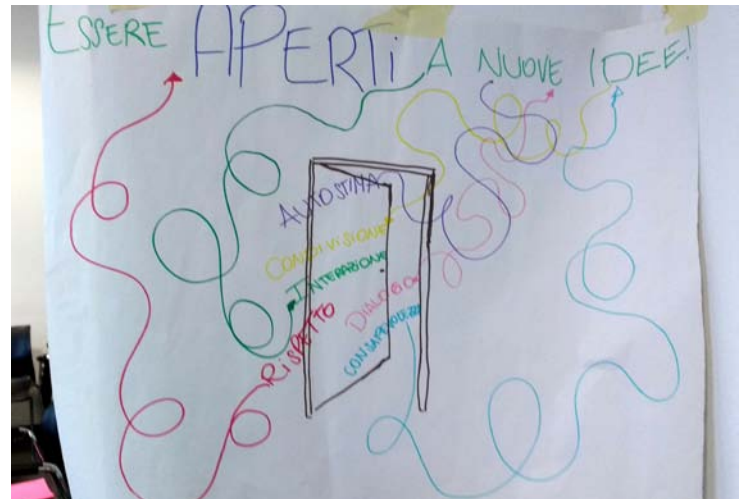 ESSERE APERTi A NUOVE IDEE!
AUTOSTIMA
CONDIVISIONE
INTERAZIONE
RISPETTO
DIALOGO
CONSAPEVOLEZZA